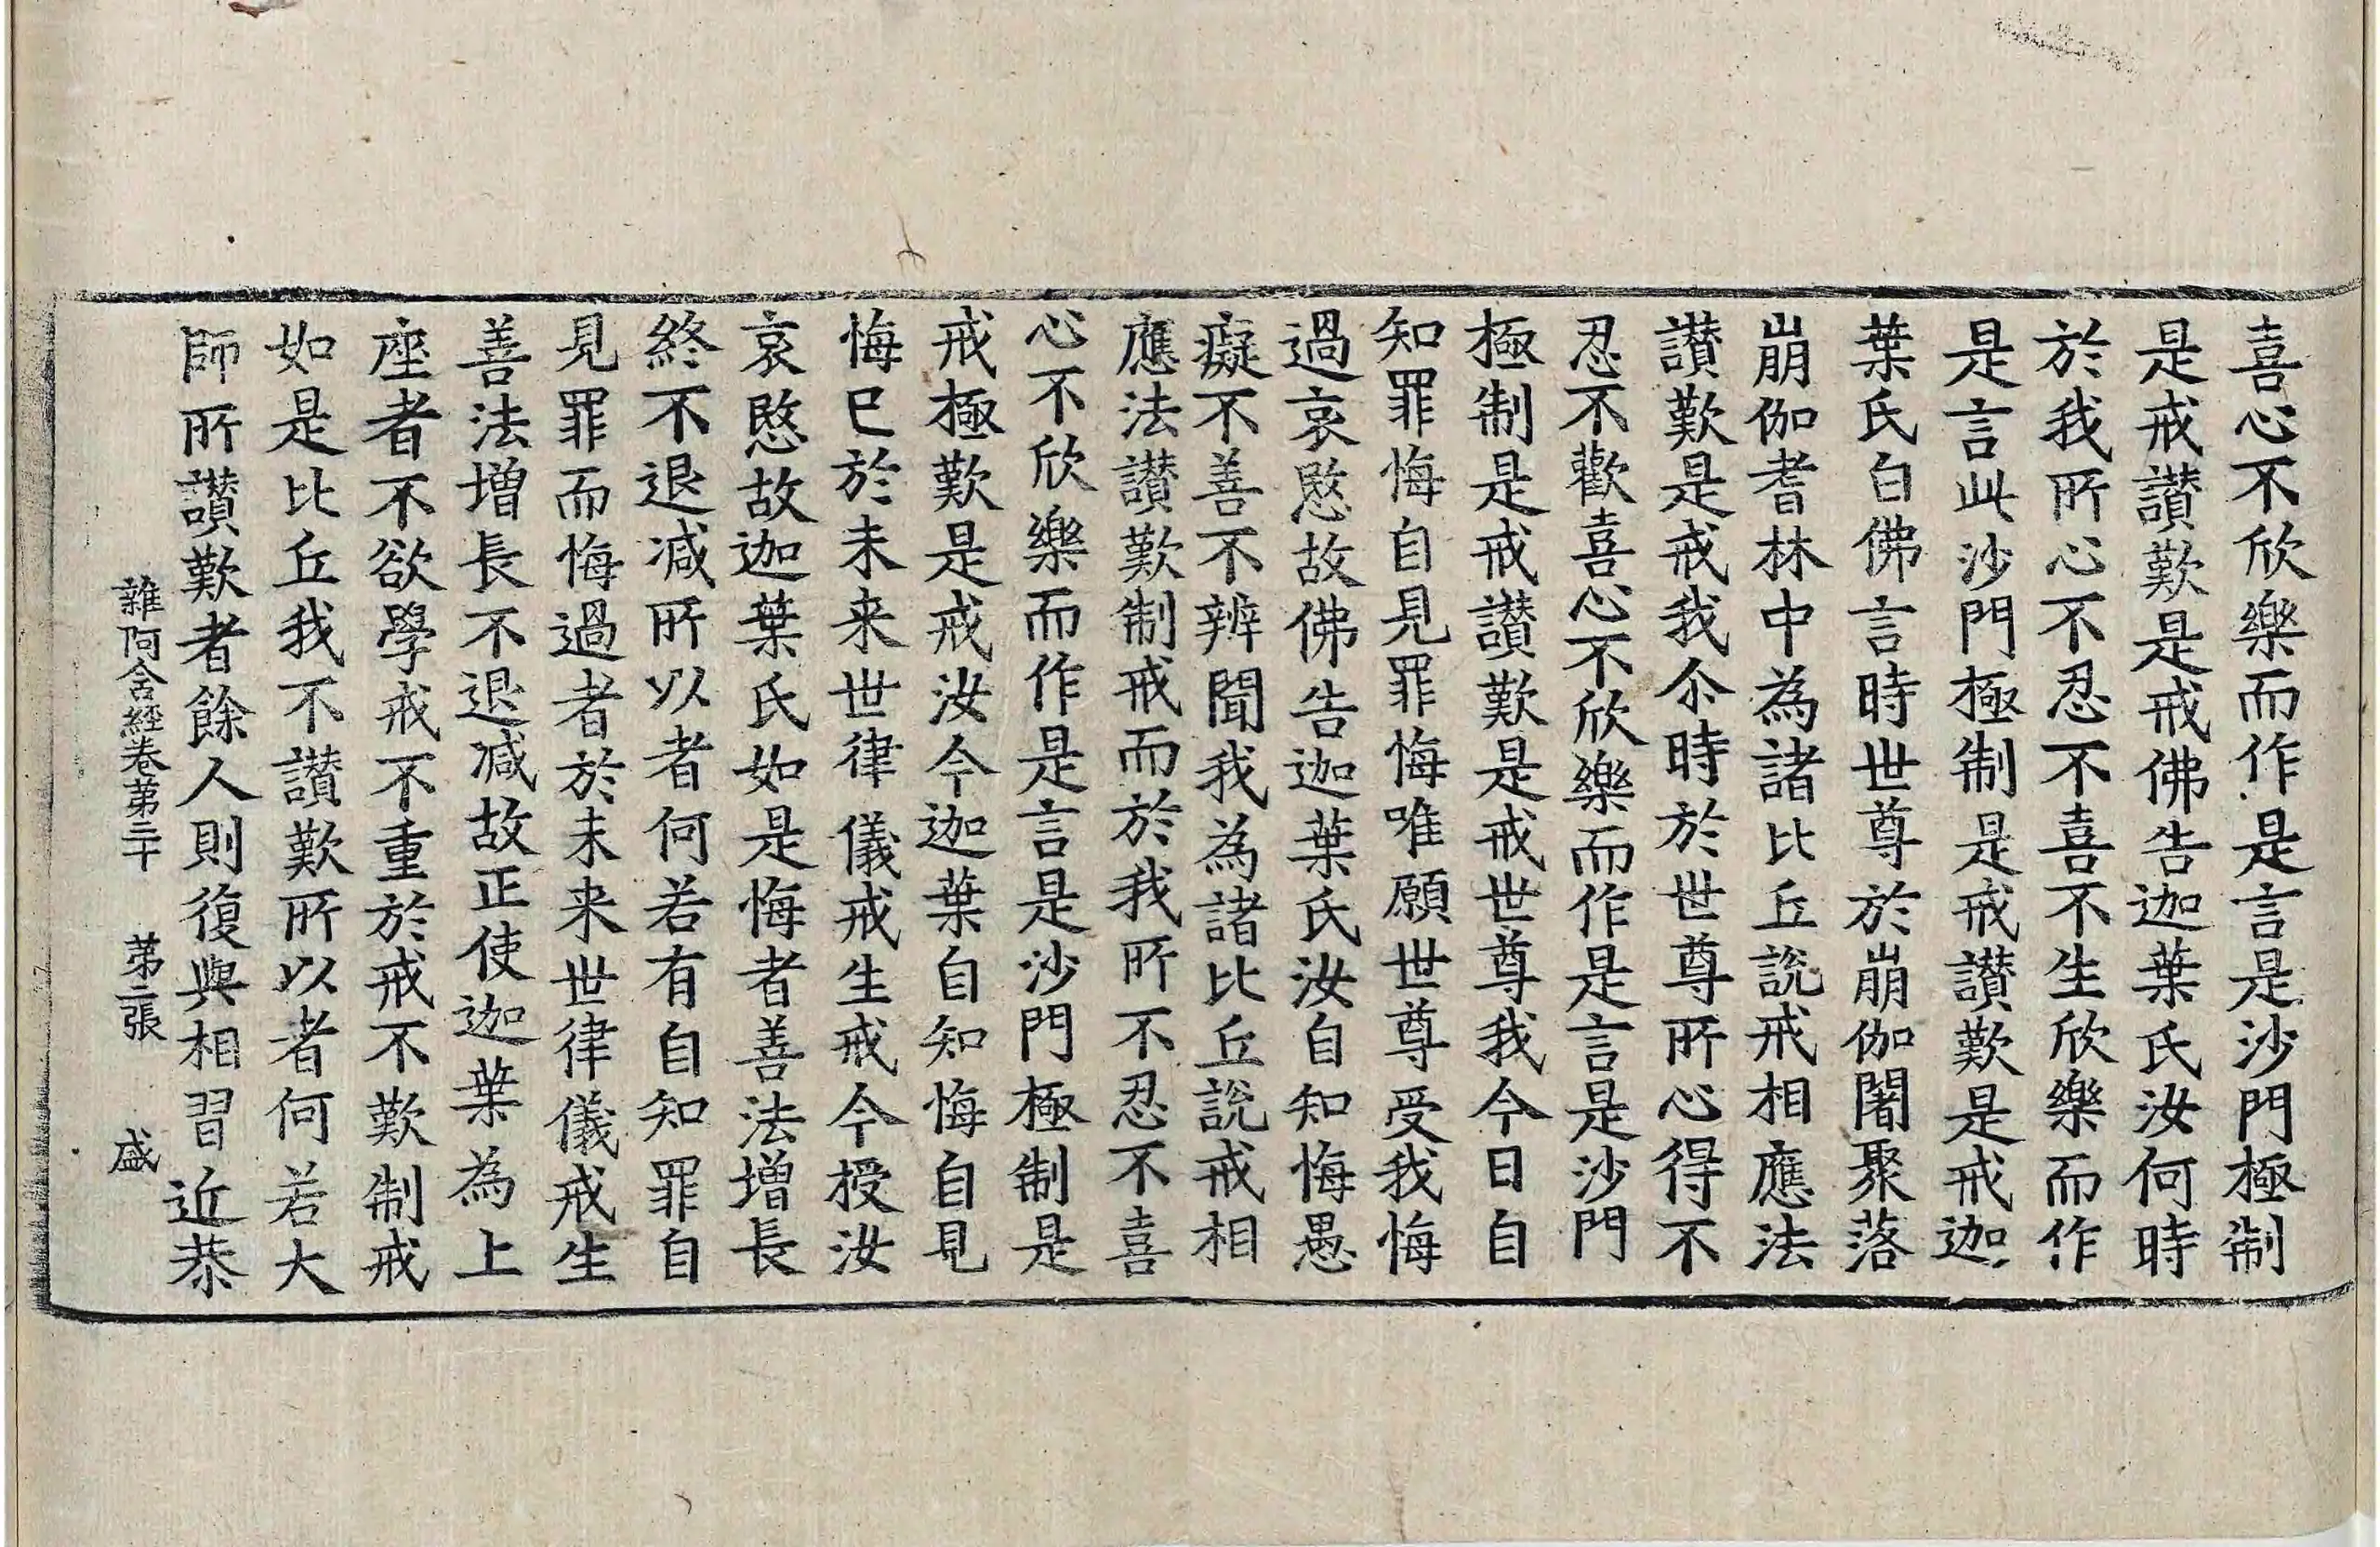 喜心不欣樂而作是言是沙門極制
是戒讃歎是戒佛告迦葉氏汝何時
於我所心不忍不喜不生欣樂而作
是言此沙門極制是戒讃歎是戒迦
葉氏白佛言時世尊於崩伽闍聚落
崩伽耆林中為諸比丘說戒相應法
讃歎是戒我尒時於世尊所心得不
忍不歡喜心不欣樂而作是言是沙門
極制是戒讃歎是戒世尊我今日自
知罪悔自見罪悔唯願世尊受我悔
過哀愍故佛告迦葉氏汝自知悔愚
癡不善不辨聞我為諸比丘說戒相
應法讃歎制戒而於我所不忍不喜
心不欣樂而作是言是沙門極制是
戒極歎是戒汝今迦葉自知悔自見
悔巳於未来世律儀戒生戒今授汝
哀愍故迦葉氏如是悔者善法增長
終不退減所以者何若有自知罪自
見罪而悔過者於未来世律儀戒生
善法增長不退減故正使迦葉為上
座者不欲學戒不重於戒不歎制戒
如是比丘我不讃歎所以者何若大
師所讃歎者餘人則復與相習近恭
雜阿含經卷第三十 第二張 盛